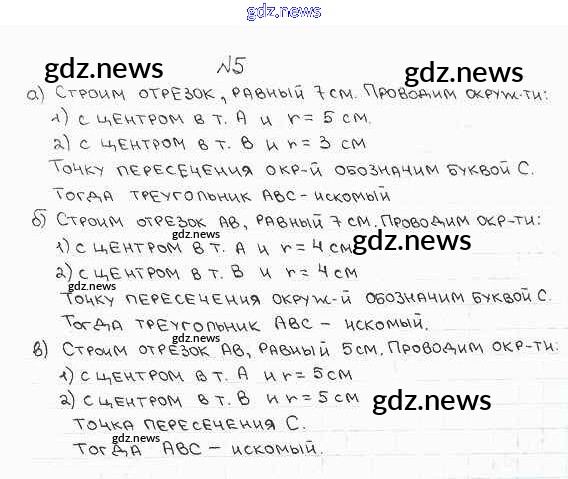 gdz.news
gdz.news
gdz.news
№5
а) Строим отрезок, равный 7 см. Проводим окруж-ти:
1) с центром в т. А и r = 5 см.
2) с центром в т. В и r = 3 см
Точку пересечения окр-й обозначим буквой С.
Тогда треугольник АВС - искомый
б) Строим отрезок АВ, равный 7 см. Проводим окр-ти:
gdz.news
1) с центром в т. А и r = 4 см
gdz.news
2) с центром в т. В и r = 4 см
gdz.news
Точку пересечения окруж-й обозначим буквой С.
Тогда треугольник АВС - искомый.
gdz.news
в) Строим отрезок АВ, равный 5 см. Проводим окр-ти:
1) с центром в т. А и r = 5 см
2) с центром в т. В и r = 5 см
gdz.news
Точка пересечения С.
gdz.news
Тогда АВС - искомый.